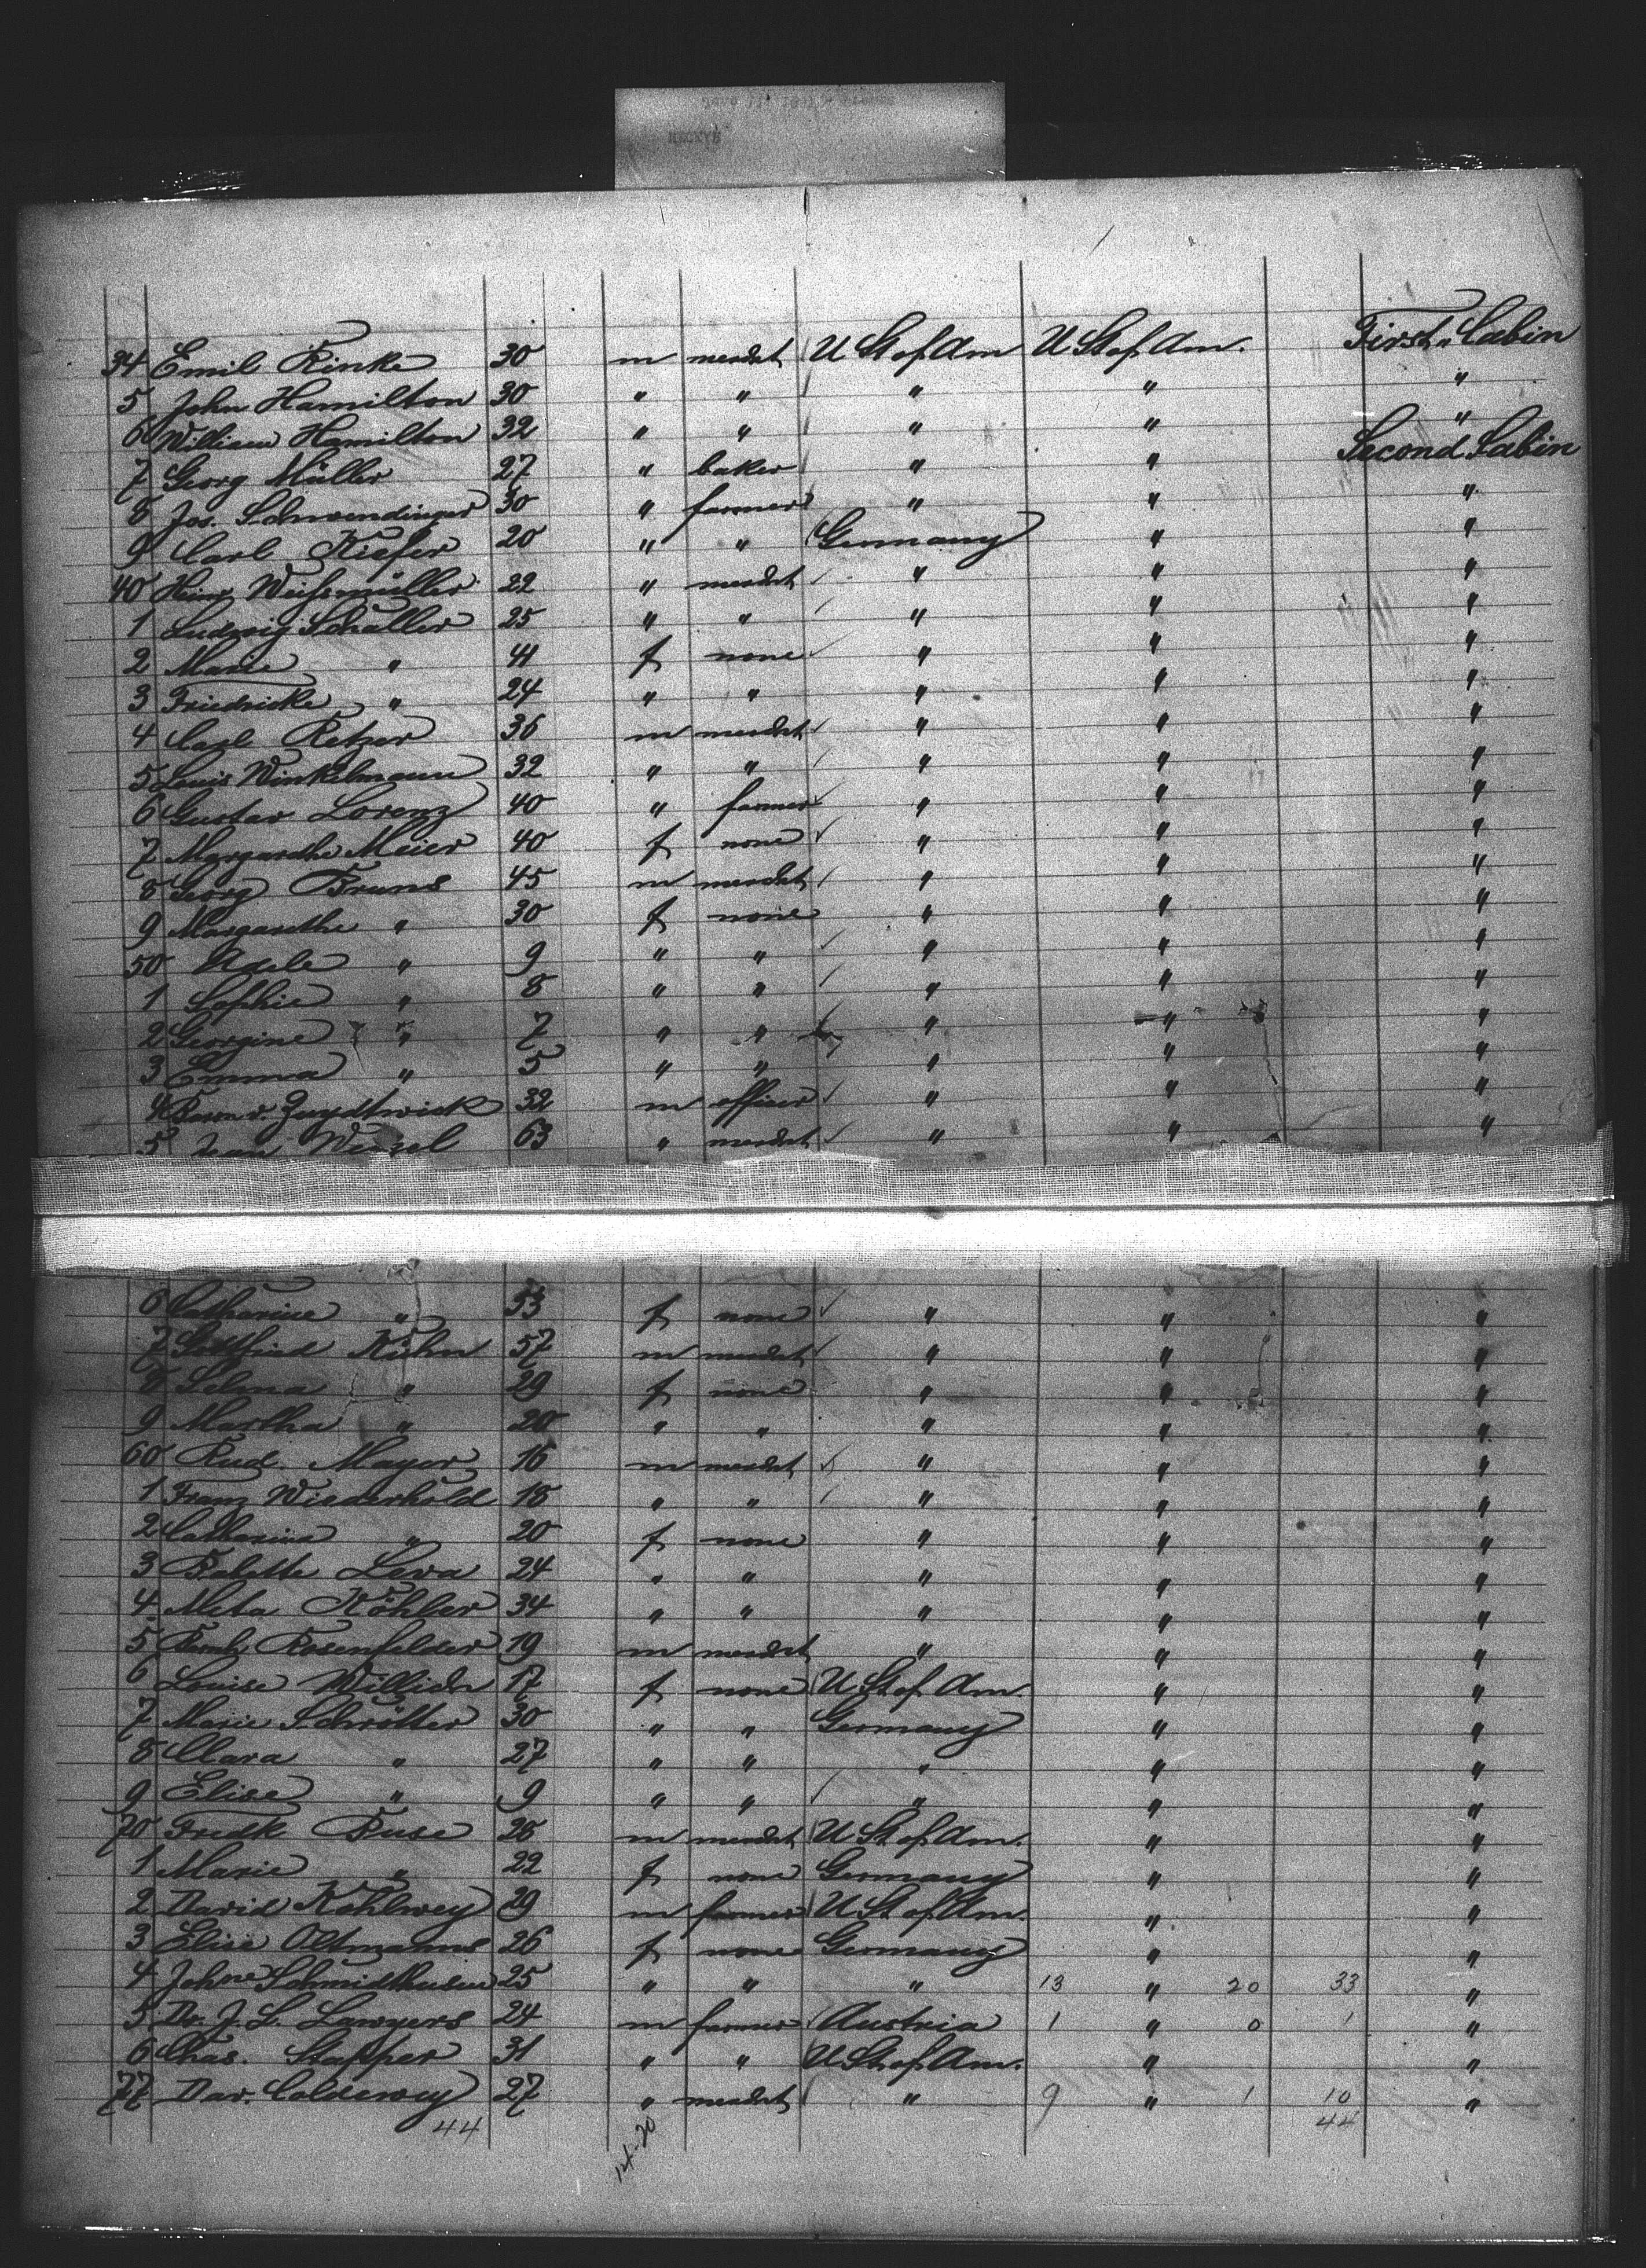 34 Emil Rinke 30 m mercht U St of Am U St of Am. First Cabin
5 John Hamilton 30 " " " " "
6 William Hamilton 32 " " " " "
7 Georg Müller 27 " baker " " Second Cabin
8 Jos. Schwendinger 30 " farmer " " "
9 Carl Kiefer 20 " " Germany " "
40 Heinr. Weißmüller 22 " mercht " " "
1 Ludwig Schaller 25 " " " " "
2 Marie " 41 f none " " "
3 Friedricke " 24 " " " " "
4 Carl Retzer 36 m mercht " " "
5 Louis Winkelmann 32 " " " " "
6 Gustav Lorenz 40 " farmer " " "
7 Margarethe Meier 40 f none " " "
8 Georg Bruns 45 m mercht " " "
9 Margarethe " 30 f none " " "
50 Adele " 9 " " " " "
1 Sophie " 8 " " " " "
2 Georgine " 7 " " " " "
3 Emma " 5 " " " " "
4 Baron v. Zuydtwick 32 m officer " " "
5 Jean Wenzel 63 " mercht " " "
6 Catharine " 53 f none " " "
7 Gottfried Kühn 57 m mercht " " "
8 Selma " 29 f none " " "
9 Martha " 20 " " " " "
60 Rud. Mayer 16 m mercht " " "
1 Franz Wiederhold 18 " " " " "
2 Catharina " 20 f none " " "
3 Babette Leva 24 " " " " "
4 Meta Köhler 34 " " " " "
5 Bernh. Rosenfelder 19 m mercht " " "
6 Louise Willich 17 f none U St of Am. " "
7 Marie Schrötter 30 " " Germany " "
8 Clara " 27 " " " " "
9 Elise " 9 " " " " "
70 Fredk Buse 28 m mercht U St of Am. " "
1 Marie " 22 f none Germany " "
2 David Kohlwey 29 m farmer U St of Am. " "
3 Elise Oltmanns 26 f none Germany " "
4 Johne Schmidthusen 25 " " " 13 " 20 33 "
5 Dr. J. L. Lawyers 24 m farmer Austria 1 " 0 1 "
6 Chas. Stapper 31 " " U St of Am. " "
77 Dav. Coldewey 27 " mercht " 9 " 1 10 "
44 14-30 44